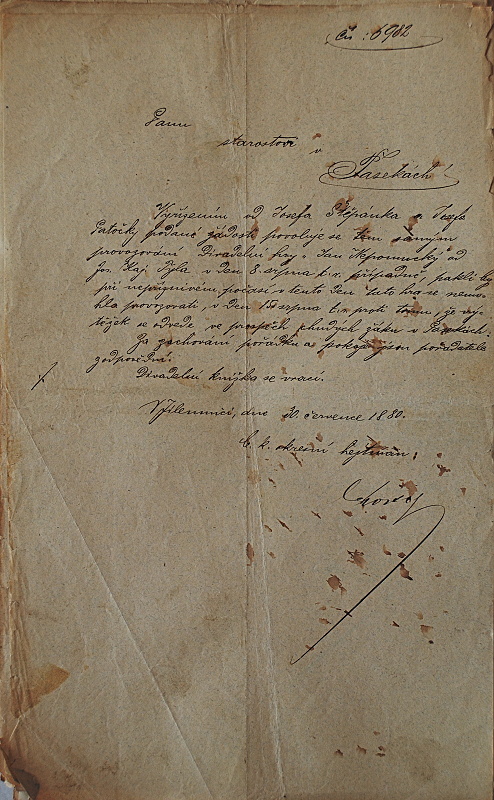 Čís: 6982
Panu
starostovi v
Pasekách!
Vyřízením od Josefa Štěpánka a Josefa
Patočky podané žádosti povoluje se těm samým
provozování Divadelní hry „Jan
Jos. Kaj. Tyla v den 8. srpna t. r. případně, pakli by
při nepříznivém počasí v tento den tato hra se nemo-
hla provozovati, v den 15 srpna t. r. proti tomu, že vý-
těžek se odvede ve prospěch chudých žáků v Pasekách.
Za zachování pořádku a pokoje jsou pořadatelé
zodpovědni.
Divadelní knížka se vrací.
V Jilemnici, dne 30. července 1880.
C. k. okresní hejtman: